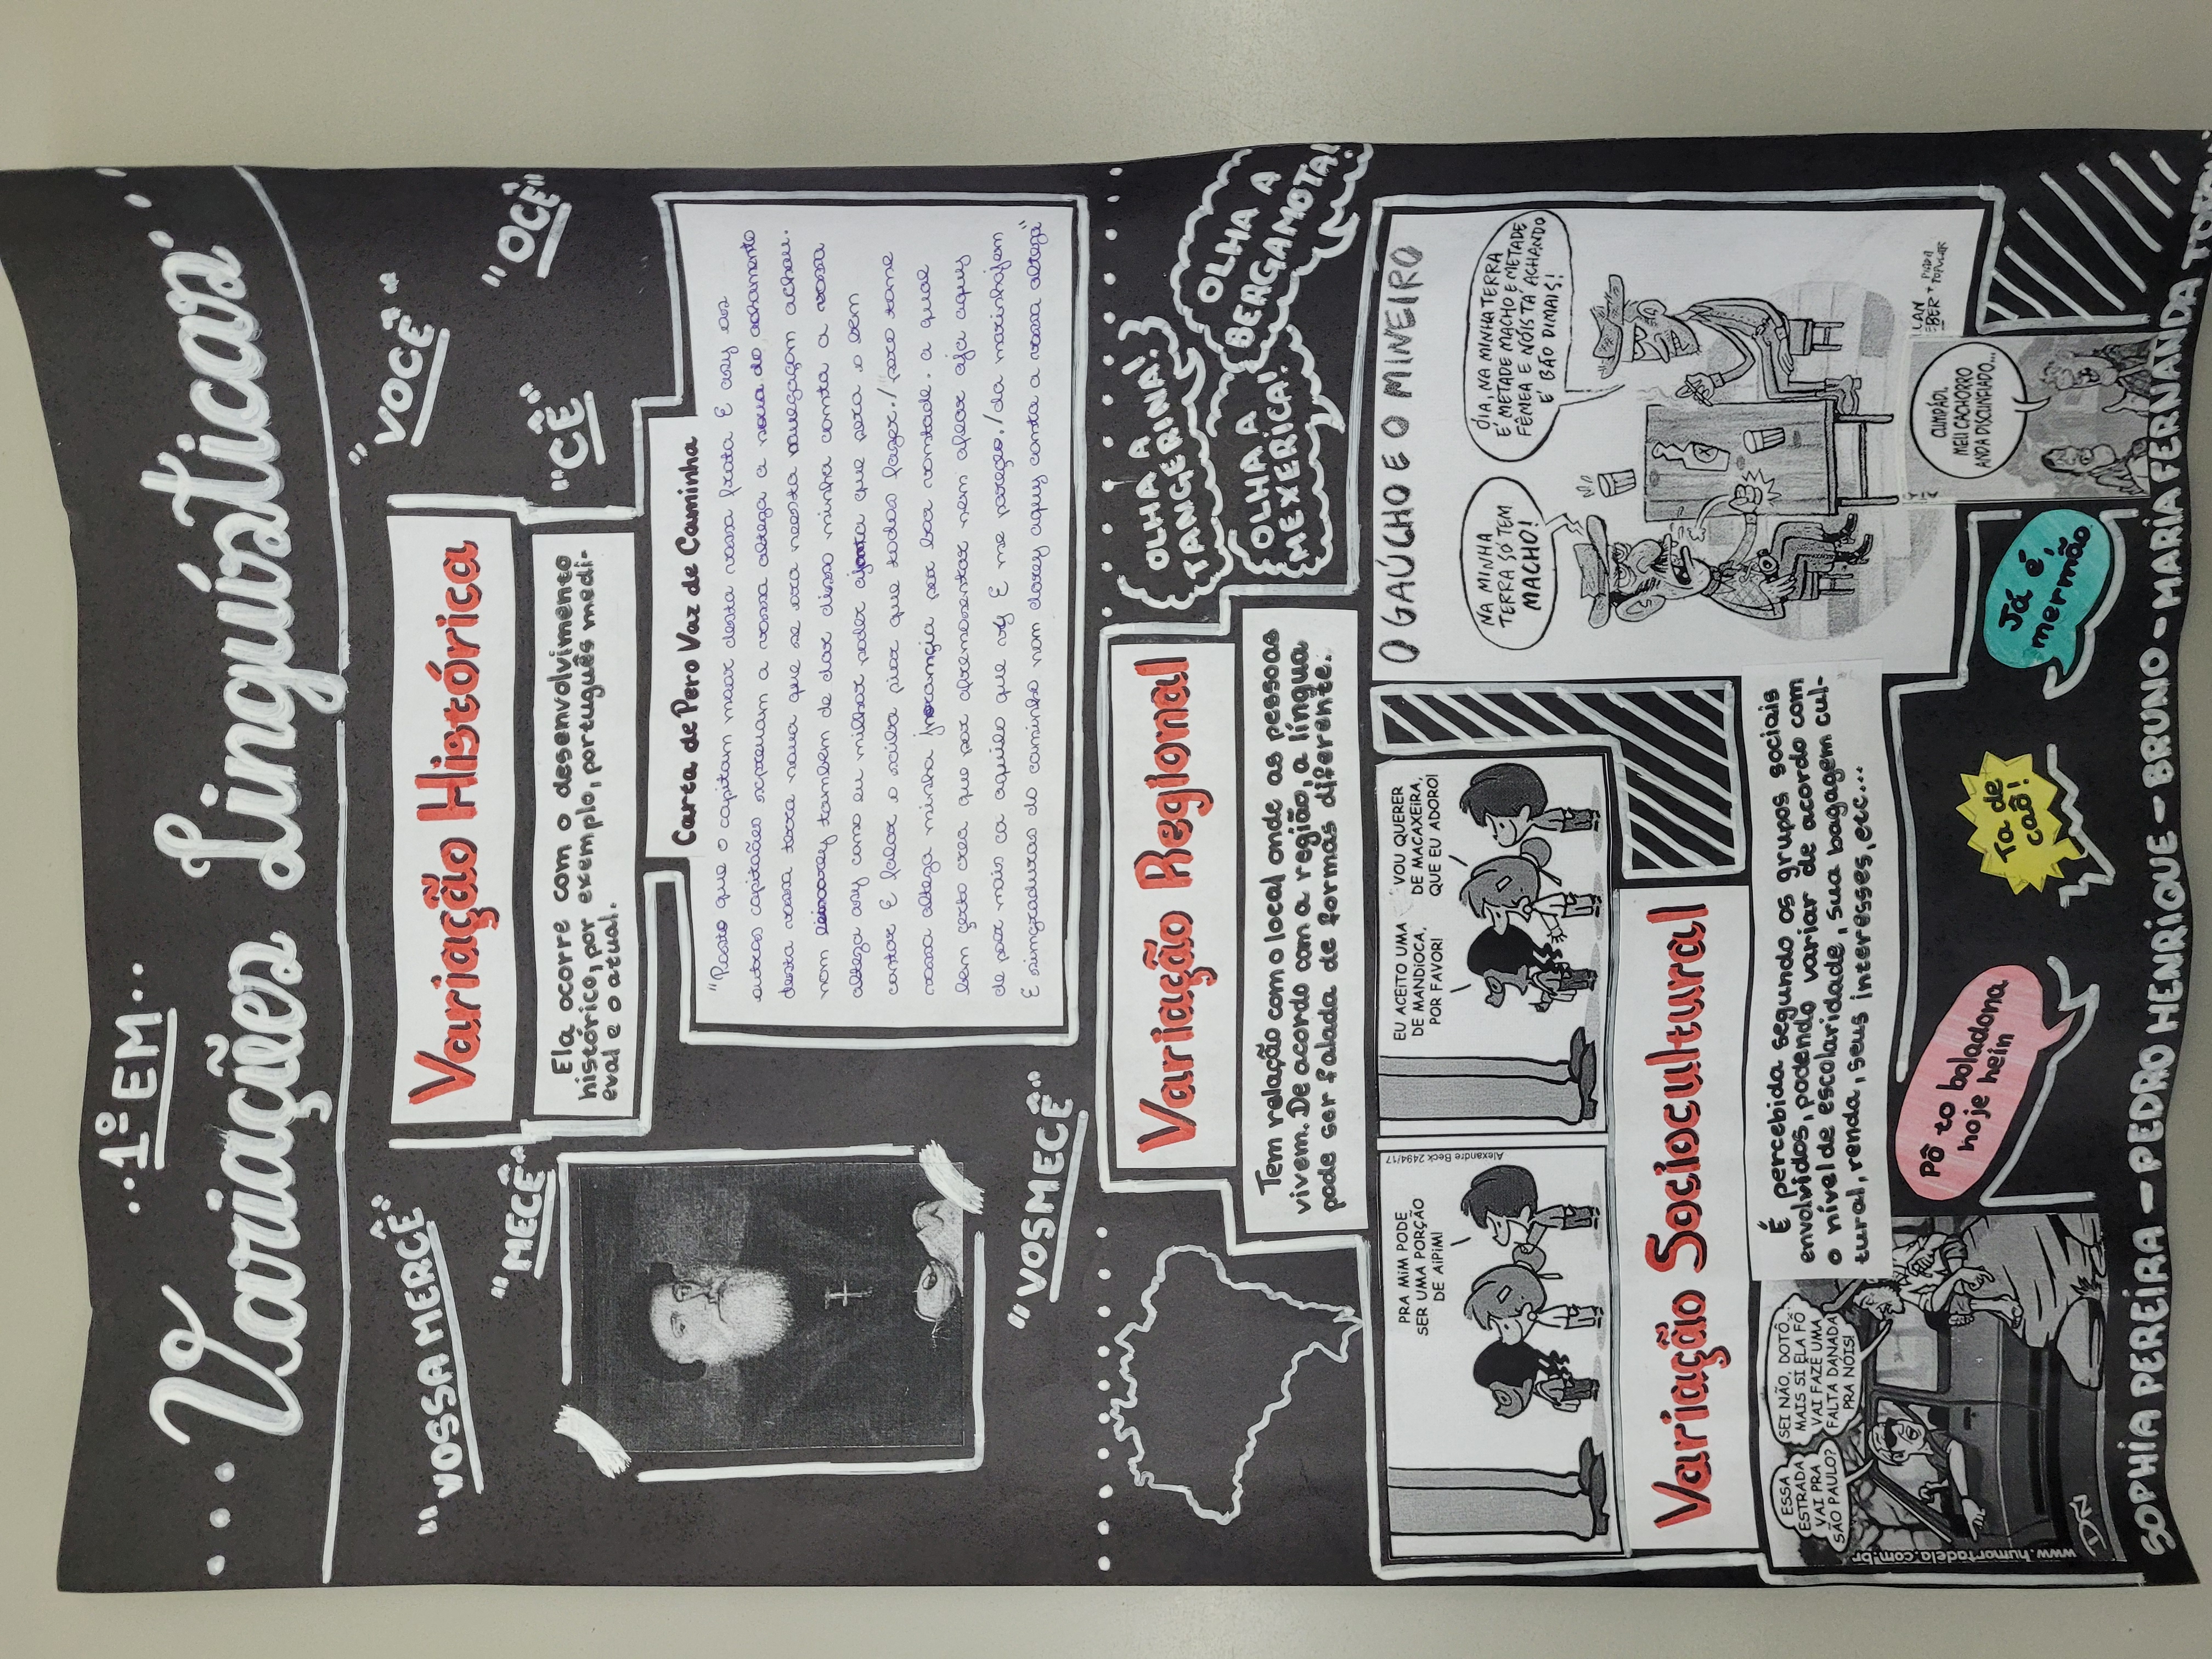 ..1º EM..
...Variações Linguísticas...
"VOSSA MERCÊ"
"VOCÊ"
"MECÊ"
"OCÊ"
"CÊ"
Variação Histórica
Ela ocorre com o desenvolvimento
histórico, por exemplo, português medi-
eval e o atual.
Carta de Pero Vaz de Caminha
"Posto que o capitam moor desta vossa frota E asy os
outros capitaães screpuam a vossa alteza a noua do achamento
desta vossa terra noua que se ora neesta nauegaçom achou.
nom tambem de dar disso minha comta a vossa
alteza asy como eu milhor poder ajmta que pera o bem
contar E falar o saiba pior que todos fazer./ pero tome
vossa alteza minha jnoramçia por boa vomtade. a qual
bem çerto crea que por afremosentar nem afear aja aquy
de poer mais ca aquilo que vy E me pareçeo./da marinhajem
E simgraduras do caminho nom darey aquy comta a vossa alteza"
"VOSMECÊ"
Variação Regional
Tem relação com o local onde as pessoas
vivem. De acordo com a região, a língua
pode ser falada de formas diferente.
OLHA A
TANGERINA!
OLHA A
BERGAMOTA!
OLHA A
MEXERICA!
PRA MIM PODE
SER UMA PORÇÃO
DE AIPIM!
Alexandre Beck 2494/17
EU ACEITO UMA
DE MANDIOCA,
POR FAVOR!
VOU QUERER
DE MACAXEIRA,
QUE EU ADORO!
O GAÚCHO E O MINEIRO
NA MINHA
TERRA SÓ TEM
MACHO!
ÓIA, NA MINHA TERRA
É METADE MACHO E METADE
FÊMEA E NÓIS TÁ ACHANDO
É BÃO DIMAIS!
PIADA
POPULAR
Variação Sociocultural
É percebida segundo os grupos sociais
envolvidos, podendo variar de acordo com
o nível de escolaridade, sua bagagem cul-
tural, renda, seus interesses, etc...
ESSA
ESTRADA
VAI PRA
SÃO PAULO?
SEI NÃO, DOTÔ...
MAIS SI ELA FÔ
VAI FAZÊ UMA
FALTA DANADA
PRA NÓIS!
www.humortadela.com.br
Pô to boladona
hoje hein
Ta de
caô!
Já é,
mermão
CUMPÁDI,
MEU CACHORRO
ANDA DISCUNFIADO...
SOPHIA PEREIRA - PEDRO HENRIQUE - BRUNO - MARIA FERNANDA